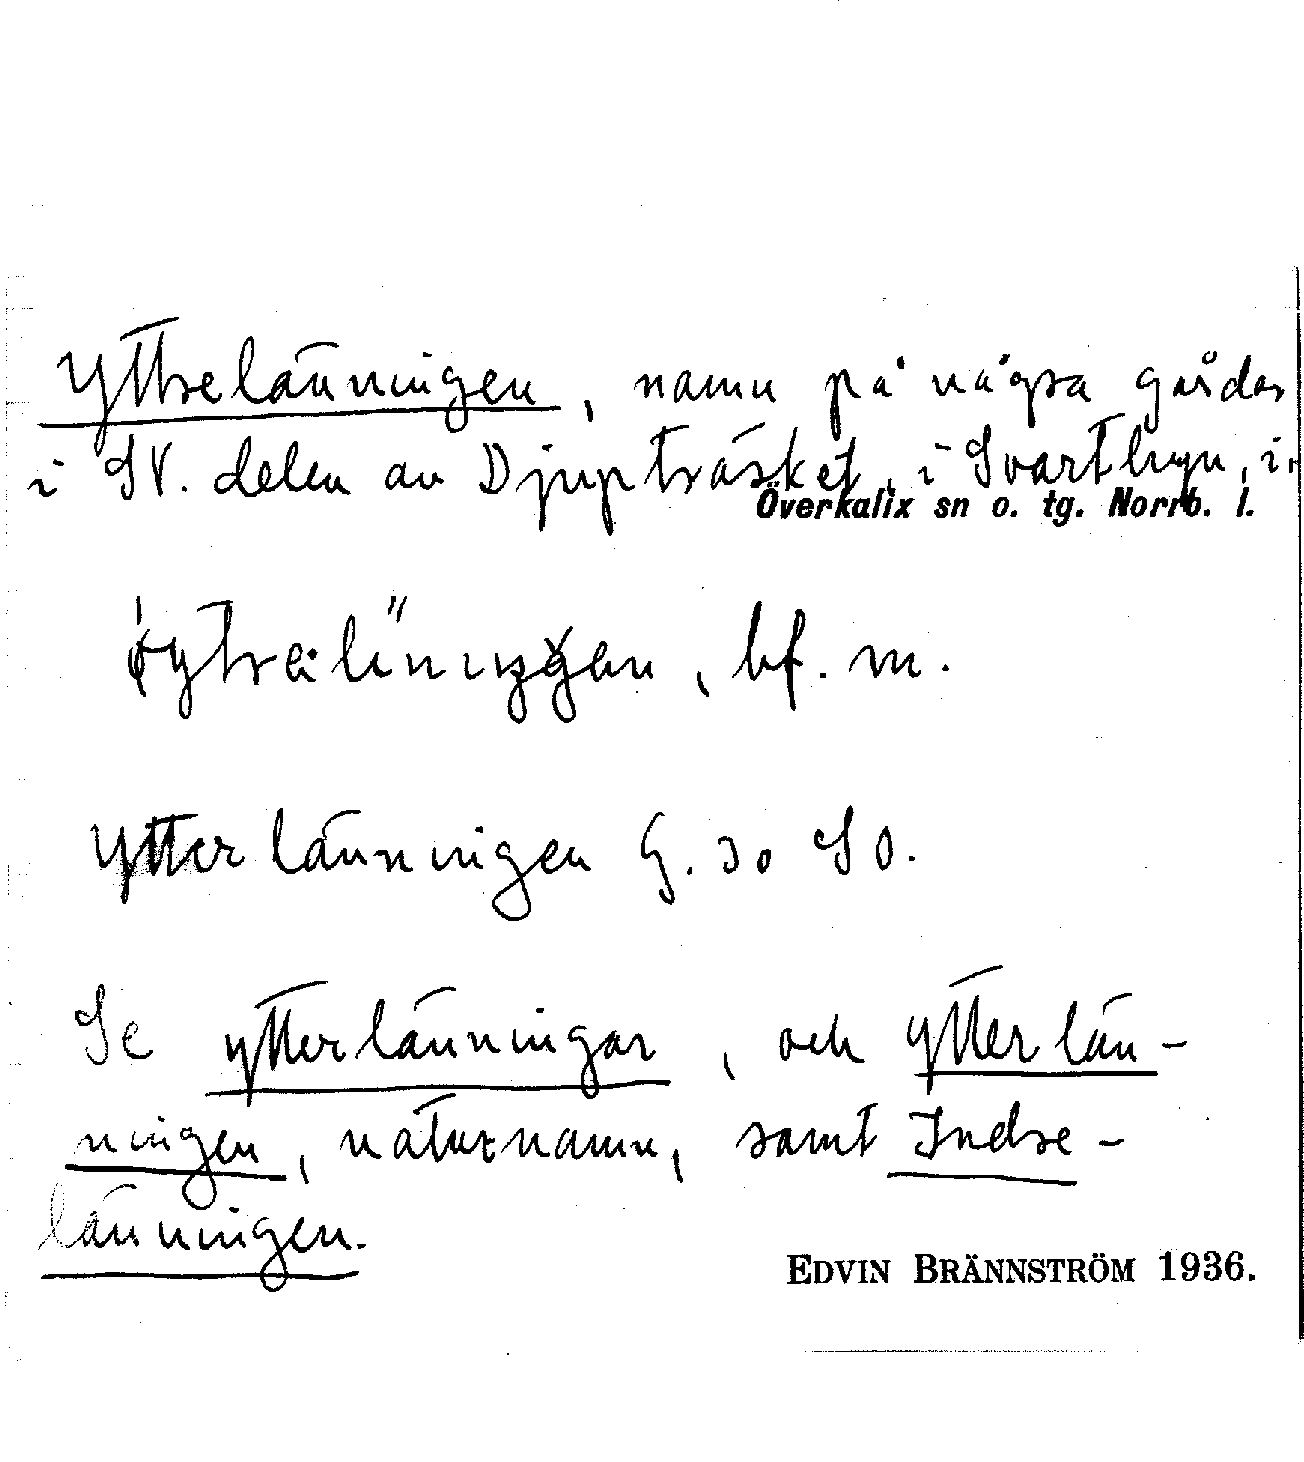 Yttrelänningen, namn på några gårdar
i SV. delen av Djupträsket, i Svartbyn, i
Överkalix sn o. tg. Norrb. l.
bf. m.
Ytterlänningen G. 30 SO.
Se ytterlänningar, och ytterlän-
ningen, naturnamn, samt Indre-
länningen.
EDVIN BRÄNNSTRÖM 1936.